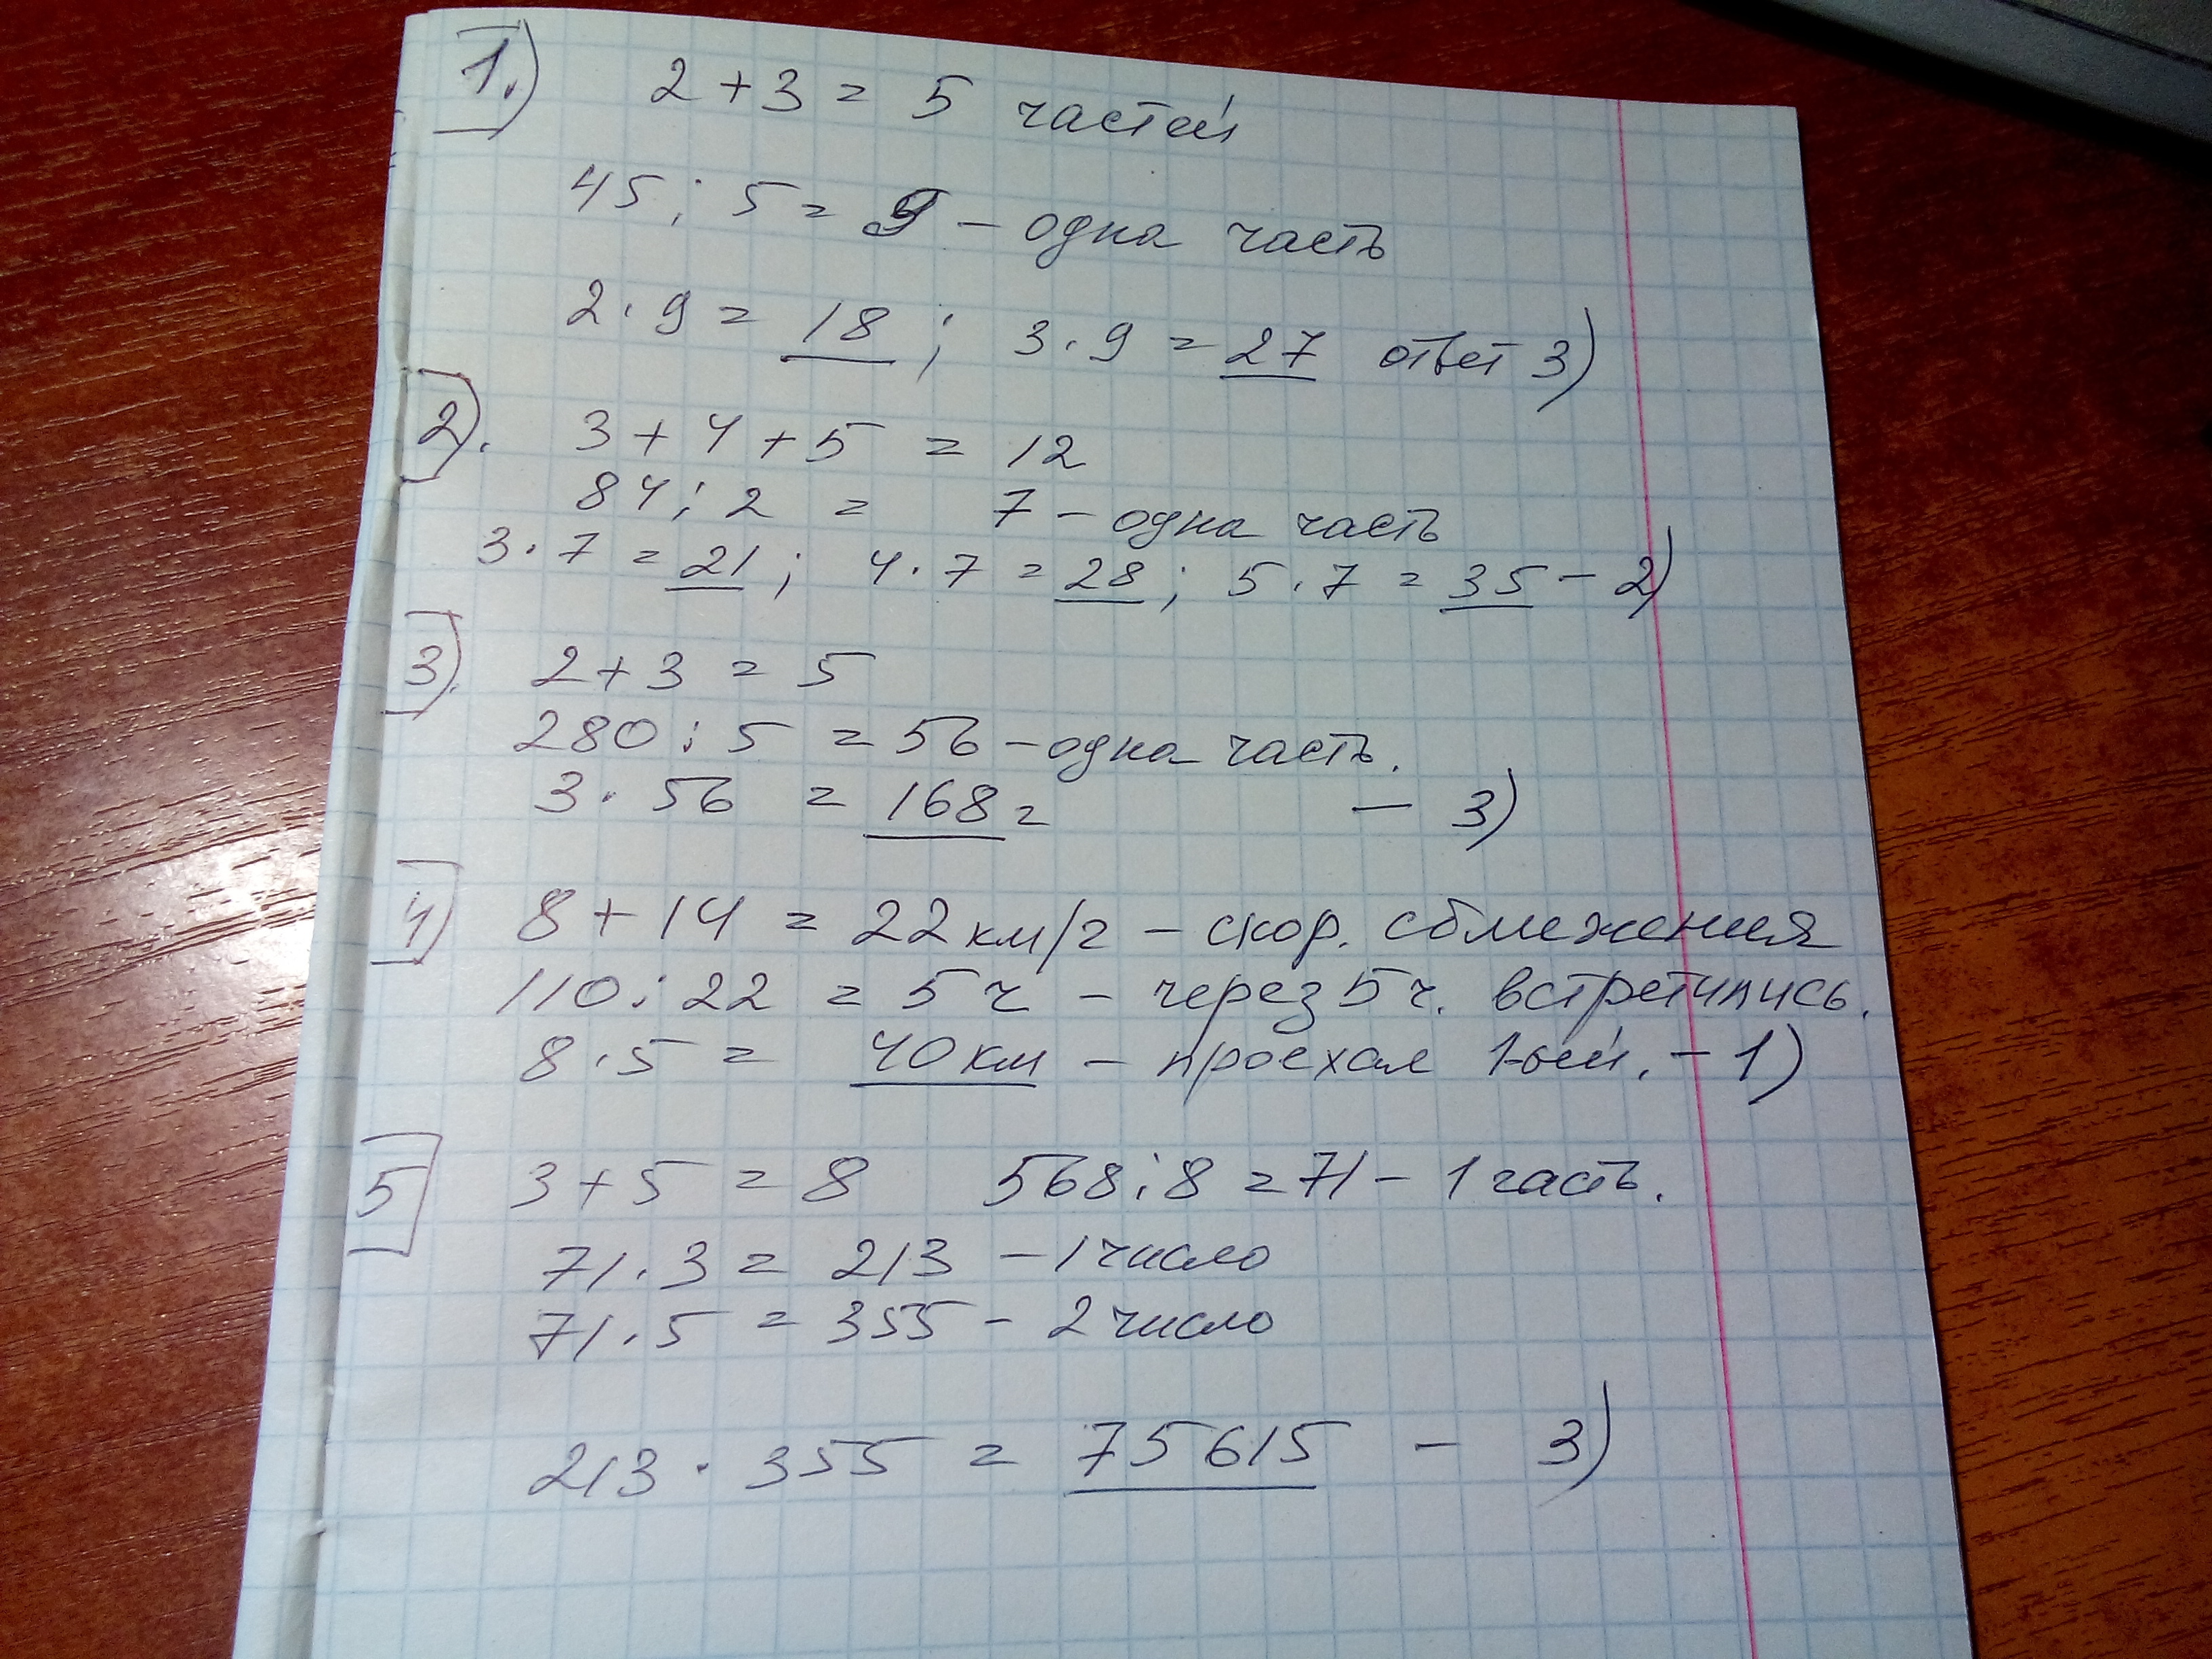 1.) 2+3 = 5 частей
45 : 5 = 9 – одна часть
2·9 = 18 ; 3·9 = 27 ответ 3)
2). 3+4+5 = 12
84 : 2 = 7 – одна часть
3·7 = 21 ; 4·7 = 28 ; 5·7 = 35 – 2)
3). 2+3 = 5
280 : 5 = 56 – одна часть.
3·56 = 168 г – 3)
4) 8+14 = 22 км/г – скор. сближения
110 : 22 = 5 ч – через 5 ч. встретились.
8·5 = 40 км – проехал 1-ый. – 1)
5 3+5 = 8 568 : 8 = 71 – 1 часть.
71·3 = 213 – 1 число
71·5 = 355 – 2 число
213·355 = 75615 – 3)